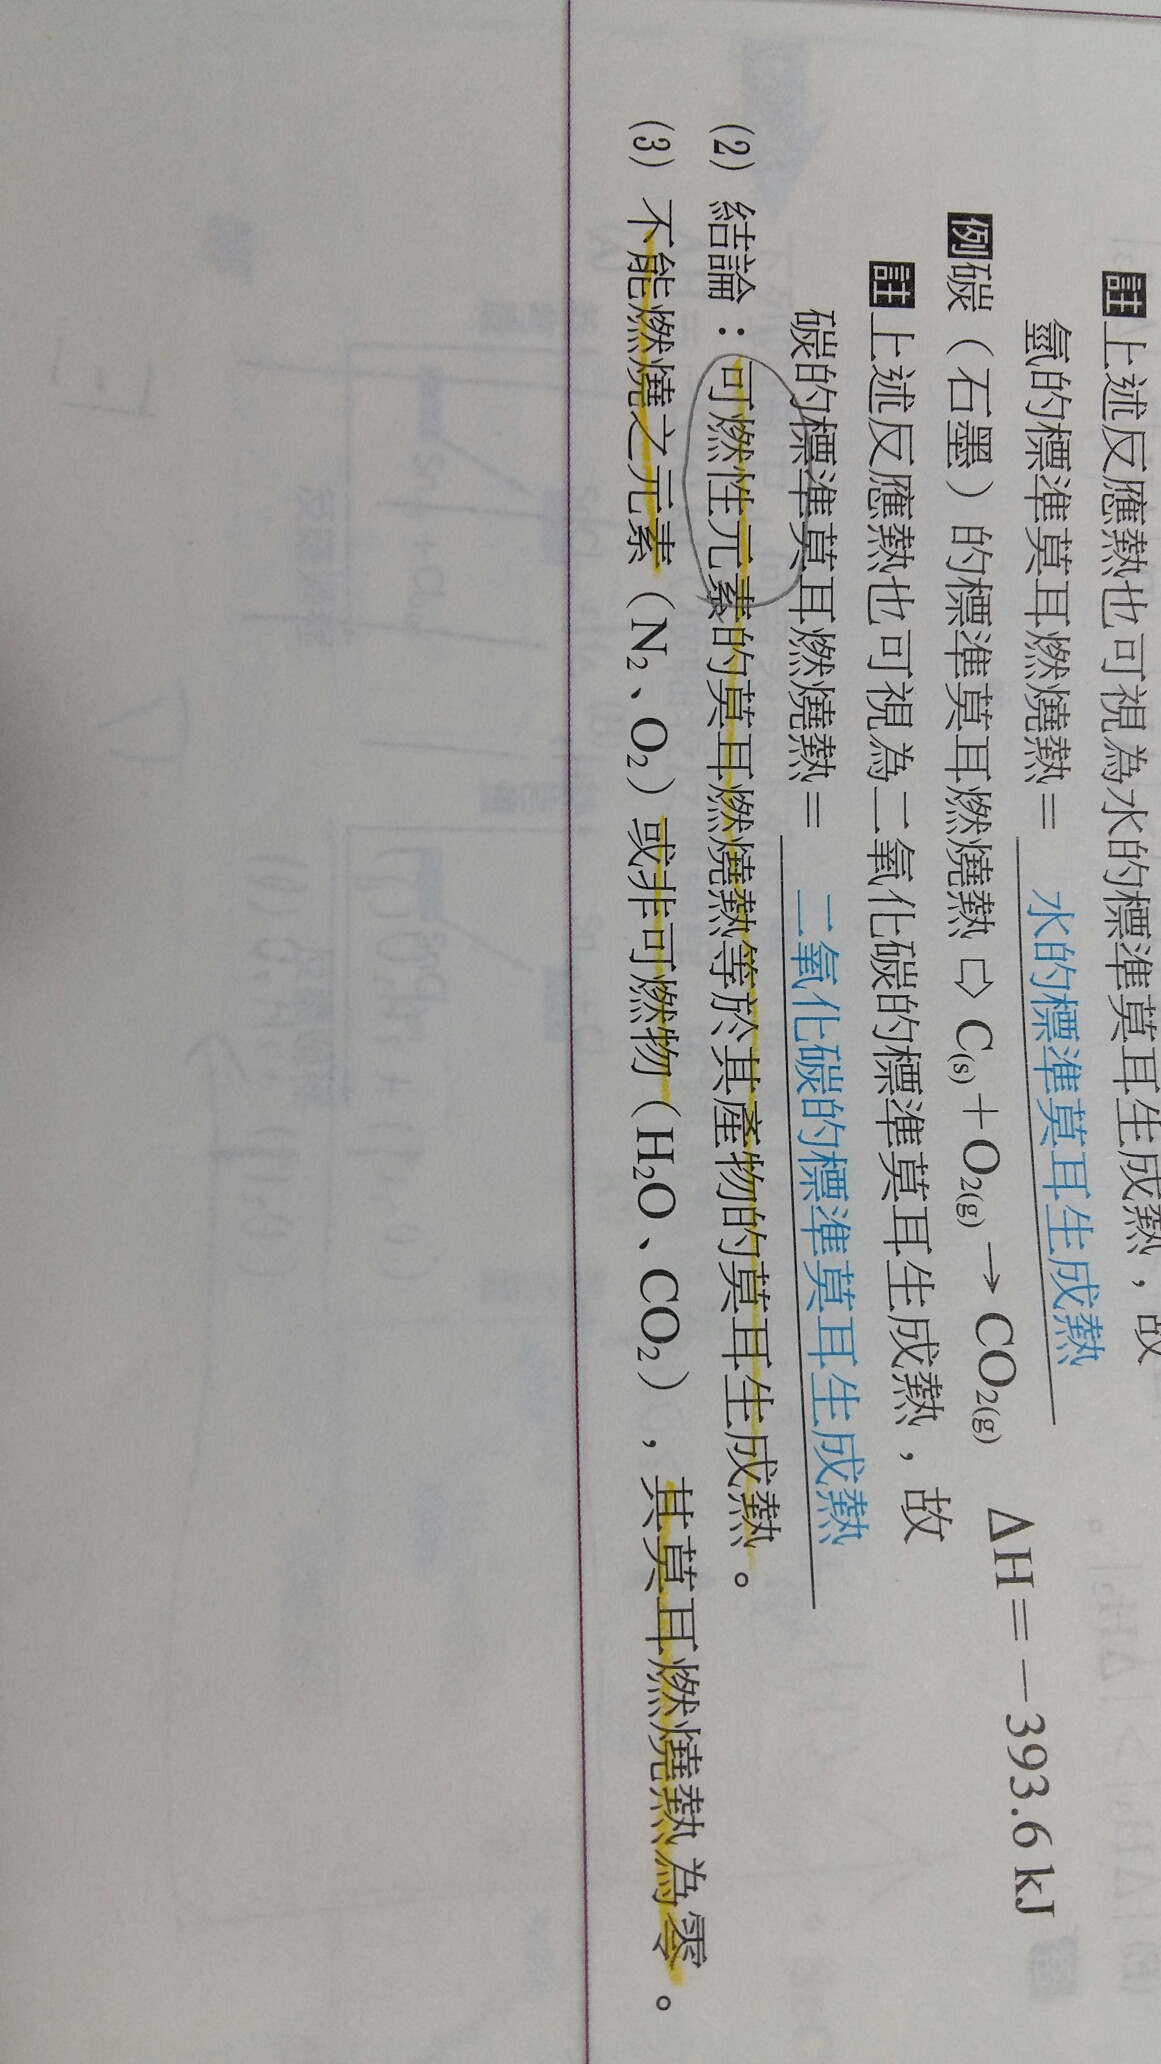 註上述反應熱也可視為水的標準莫耳生成熱,故
氫的標準莫耳燃燒熱= 水的標準莫耳生成熱
例碳(石墨)的標準莫耳燃燒熱 ⇨ C(s)+O2(g)→CO2(g) ΔH=-393.6 kJ
註上述反應熱也可視為二氧化碳的標準莫耳生成熱,故
碳的標準莫耳燃燒熱= 二氧化碳的標準莫耳生成熱
(2) 結論:可燃性元素的莫耳燃燒熱等於其產物的莫耳生成熱。
(3) 不能燃燒之元素(N2、O2)或非可燃物(H2O、CO2),其莫耳燃燒熱為零。